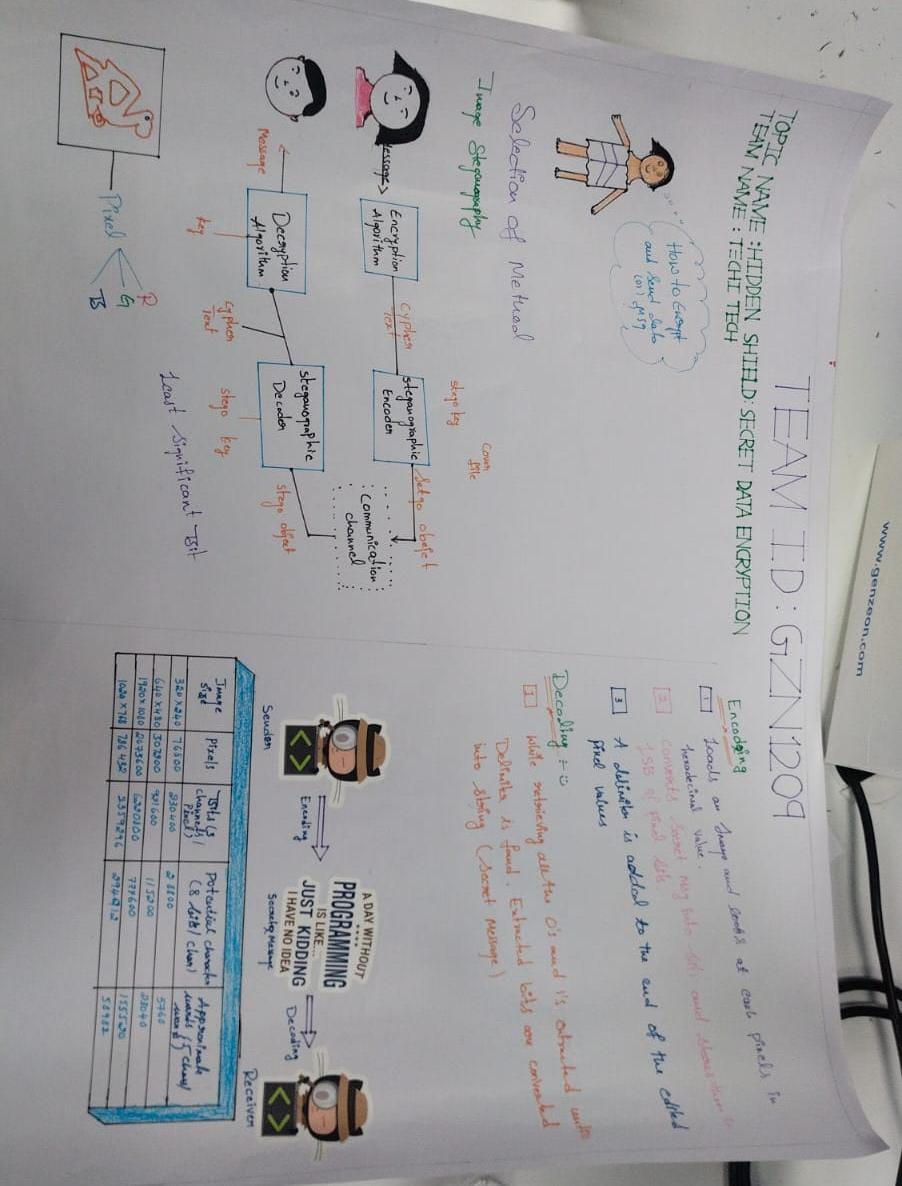 www.genzeon.com
TEAM ID: GZN1209
TOPIC NAME :HIDDEN SHIELD: SECRET DATA ENCRYPTION
TEAM NAME : TECHI TECH
How to Encrypt
and Send data
(or) Msg
Selection of Method
Image Steganography
Cover
file
stego key
Message
Encryption
Algorithm
Cypher
Text
steganographic
Encoder
Setgo obejct
Communication
channel
Message
Decryption
Algorithm
key
Cypher
Text
steganographic
Decoder
stego key
stego object
Least Significant Bit
Pixel
R
G
B
Encoding
1 Loads an Image and looks at each pixels in
hexadecimal value.
2 converts Secret Msg into bits and stores them in
LSB of pixel bits
3 A delimiter is added to the end of the edited
pixel values
Decoding :-
1 While retrieving all the 0's and 1's extracted until
Delimiter is found. Extracted bits are converted
into string (Secret Message)
A DAY WITHOUT
PROGRAMMING
IS LIKE...
JUST KIDDING
I HAVE NO IDEA
Encoding
Decoding
Sender
Secret Message
Receiver
Image Size Pixels Bits (3 channels/ Pixel) Potential character (8 bits/ char) Approximate words (5 chars/ word)
320 x 240 76800 230400 28800 5760
640 x 480 307200 921600 115200 23040
1920 x 1080 2073600 6220800 777600 155520
1024 x 768 786 432 2359296 294912 58982